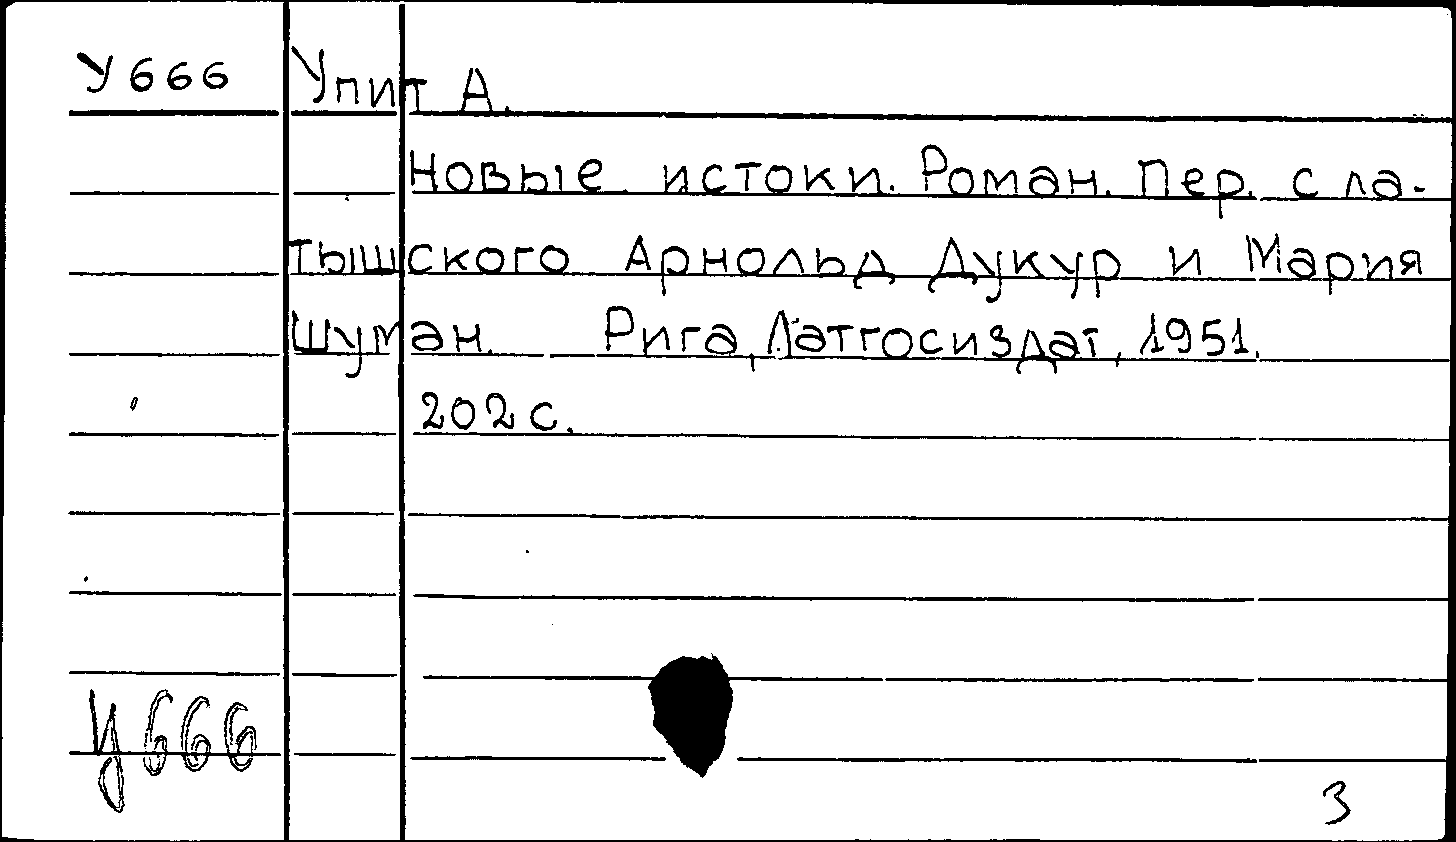 У666 Упит А.
Новые истоки. Роман. Пер. с ла-
тышского Арнольд Дукур и Мария
Шуман. Рига, Латгосиздат, 1951.
202 с.
У666
3